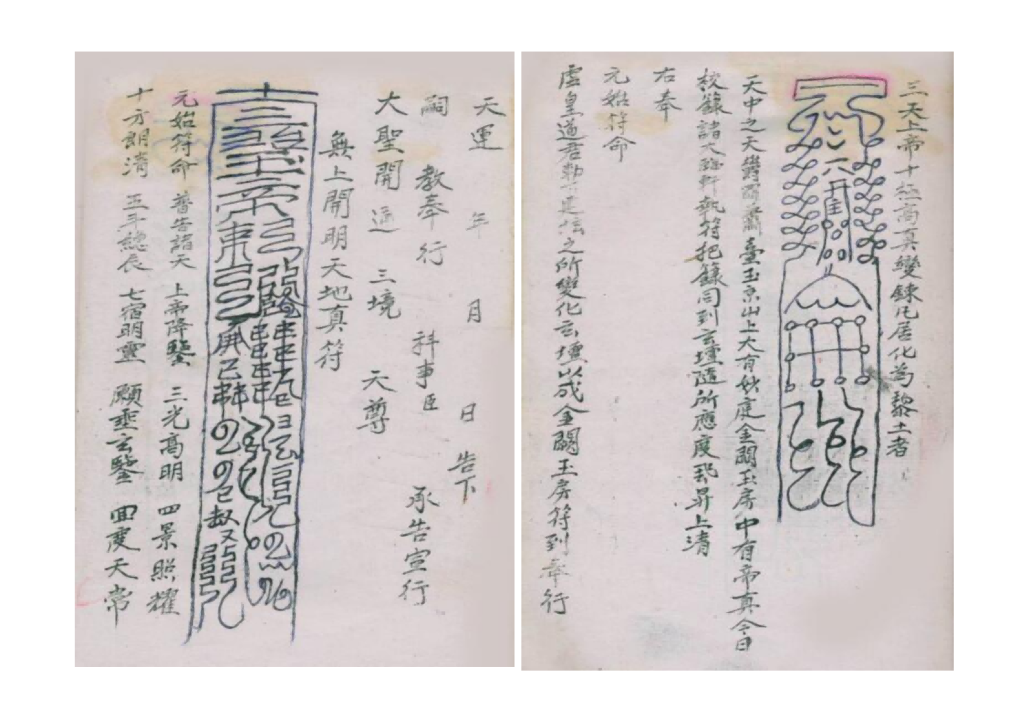 三天上帝十極高真變鍊凡居化為黎土者
天中之天欝羅蕭臺玉京山上大有妙庭金闕玉房中有帝真今日
校籙諸大臨軒執符把籙同到玄壇隨所應度 昇上清
右奉
元始符命
虛皇道君勅 是坛之所變化玄壇以成金闕玉房符到奉行
天運 年 月 日 告下
嗣 教奉行 拜事臣 承告宣行
大聖開通 三境 天尊
無上開明天地真符
元始符命 普告諸天 上帝降鑒 三光高明 四景照耀
十方朗清 五斗總辰 七宿明靈 願垂玄鑒 回度天常